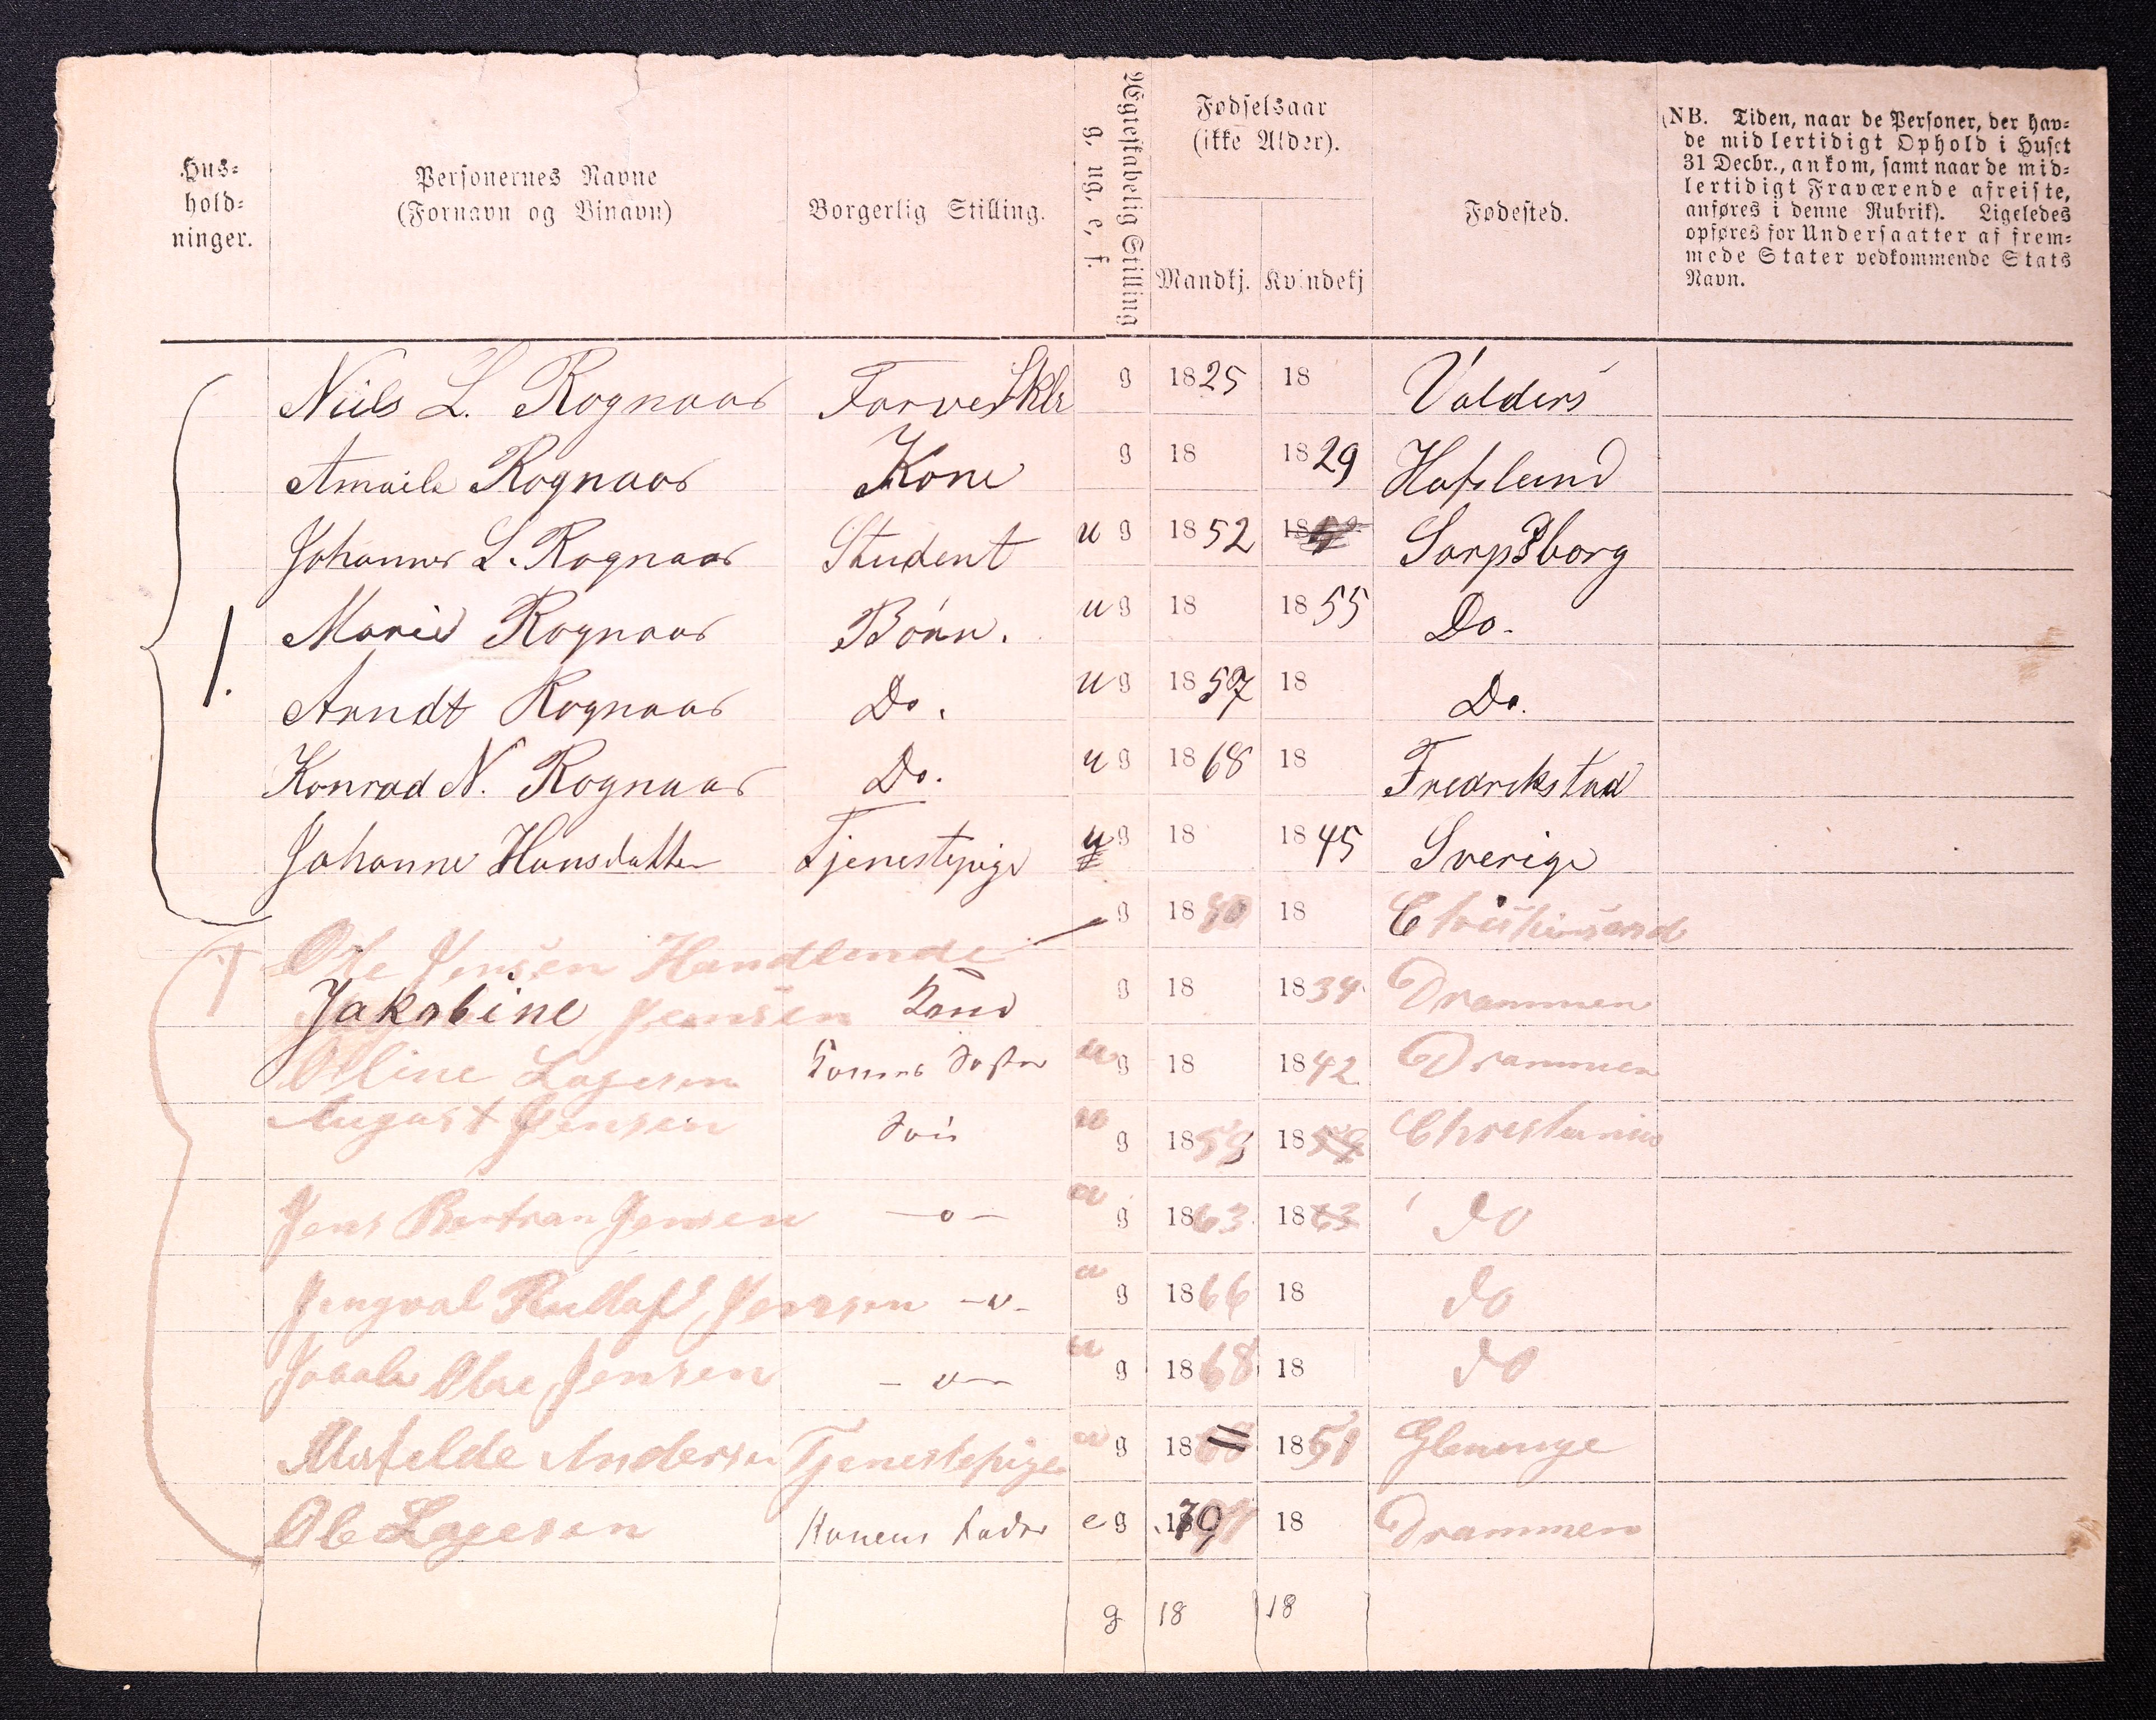 Hus-
hold-
ninger.
Personernes Navne
(Fornavn og Binavn)
Borgerlig Stilling.
Ægteskabelig Stilling
g, ug, e, f.
Fødselsaar
(ikke Alder).
Mandkj. Kvindekj
Fødested.
(NB. Tiden, naar de Personer, der hav-
de midlertidigt Ophold i Huset
31 Decbr., ankom, samt naar de mid-
lertidigt Fraværende afreiste,
anføres i denne Rubrik). Ligeledes
opføres for Undersaatter af frem-
mede Stater vedkommende Stats
Navn.
1.
Niels L. Rognaas Farver g 1825 18 Valders
Rognaas Kone g 18 1829 Hafslund
Johannes L. Rognaas Student u g 1852 18 Sarpsborg
Marie Rognaas Børn. u g 18 1855 Do.
Arndt Rognaas Do. u g 1857 18 Do.
Konrad N. Rognaas Do. u g 1868 18 Fredrikstad
Johanne Hansdatter Tjenestepige u g 18 1845 Sverige
Ole Jensen Handlende g 18 18 Christiansand
Jakobine Jensen Kone g 18 1834 Drammen
Oline Lagesen Konens Søster u g 18 1842 Drammen
August Jensen Søn u g 1859 1859 Christiania
Jens Bertran Jensen -o- u g 1863 1863 do
Jensen -o- u g 1866 18 do
Jensen -o- u g 1868 18 do
Matilde Andersen Tjenestepige u g 1868 1851 Glemmige
Ole Lagesen Konens Fader e g 179 18 Drammen
g 18 18